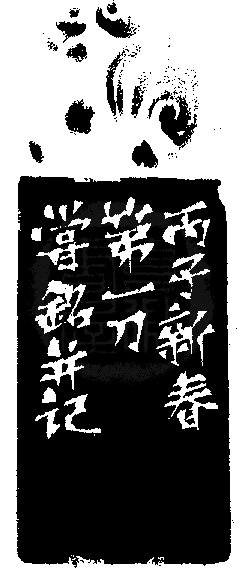 丙子新春
第一刀
嘗銘并记